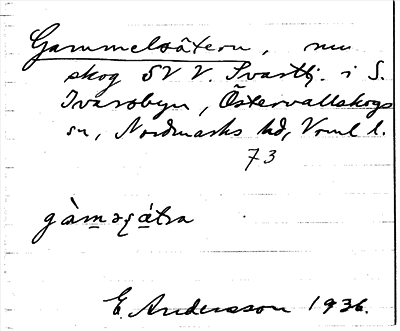 Gammelsätern, nu
skog SV V. Svarttj. i S.
Ivarsbyn, Östervallskogs
sn, Nordmarks hd, Vrml l.
73
gàm̲əʂá̲tra
E. Andersson 1936.